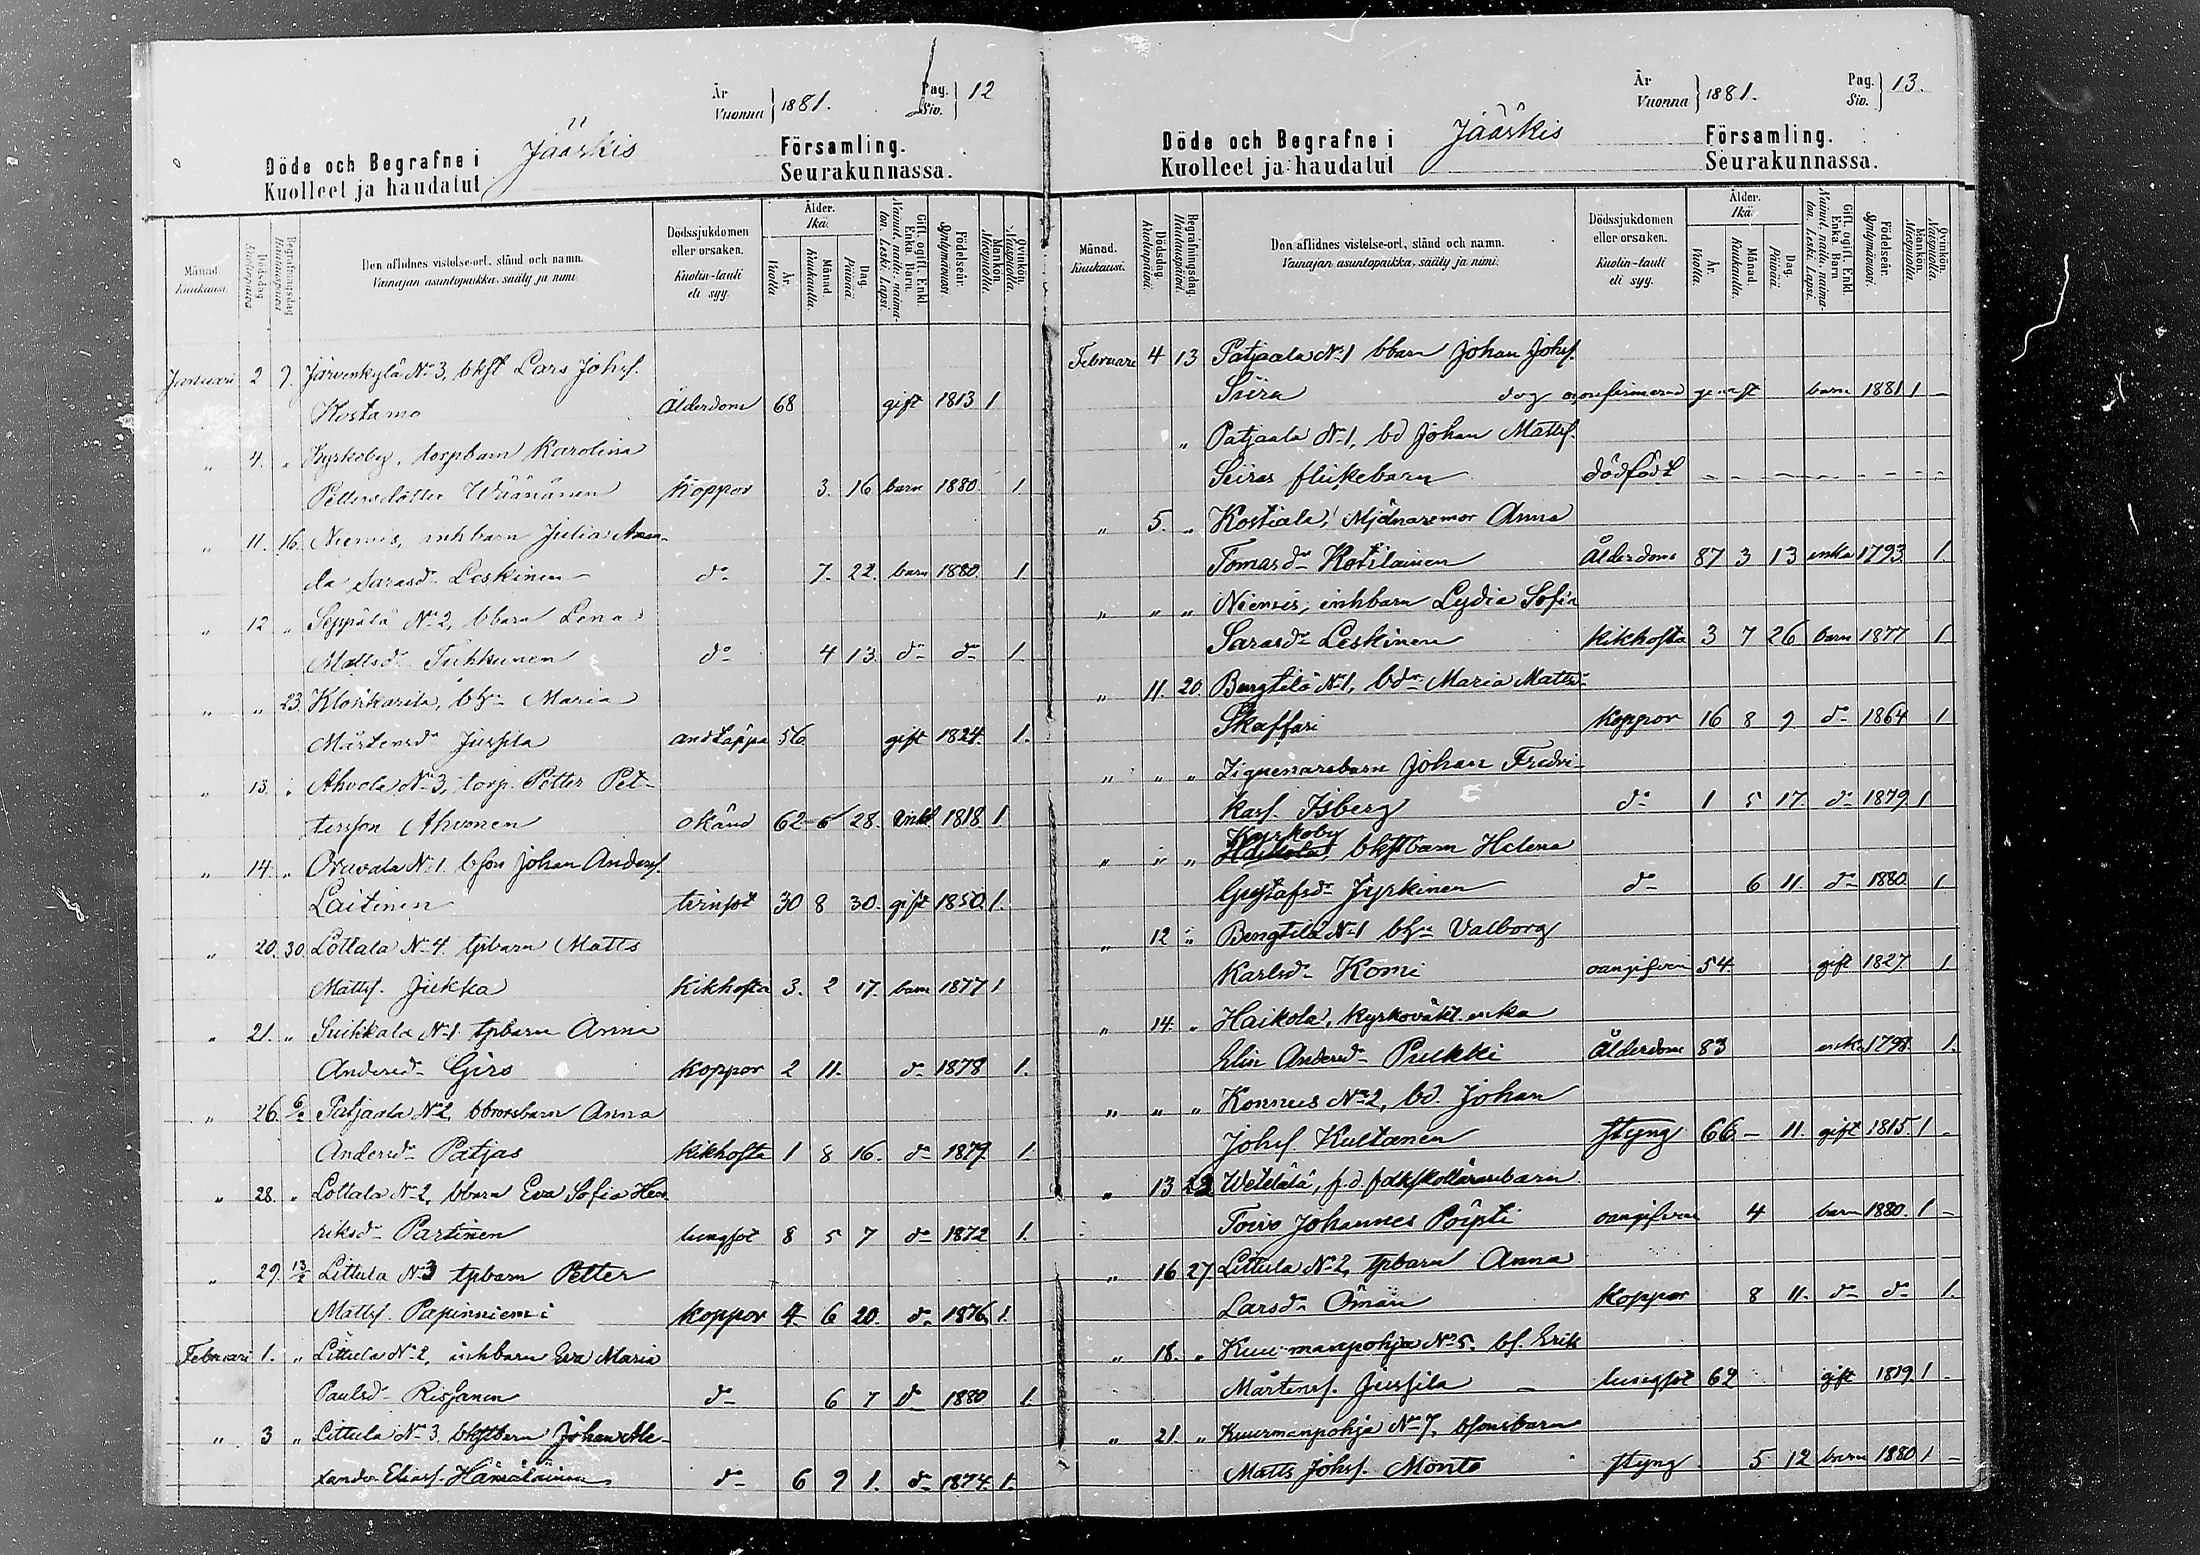 År
Vuonna } 1881. Pag. Siv. } 12
Döde och Begrafne i Jääskis Församling.
Kuolleet ja haudatut Seurakunnassa.
Månad. Kuukausi. Dödsdag. Kuolinpäivä. Begrafningsdag. Hautauspäivä. Den aflidnes vistelse-ort, stånd och namn. Vainajan asuntopaikka, sääty ja nimi. Dödssjukdomen eller orsaken. Kuolin-tauti eli syy. Ålder. Ikä. År. Vuotta. Månad. Kuukautta. Dag. Päivää. Gift, ogift, Enkl. Enka, Barn. Nainut, naimaton, Leski, Lapsi. Födelseår. Syntymävuosi. Mankön. Miespuolta. Qvinkön. Vaispuolta.
Januari 2 9. Järvenkylä No 3, bkst Lars Johsf.
Kostamo Ålderdom 68 gift 1813 1
" 4. " Kyrkoby, torpbarn Karolina
Pettersdotter Wäänänen Koppor 3. 16 barn 1880. 1.
" 11. 16. Niemis, inhbarn Julia Aman-
da Sarasdr Leskinen do 7. 22. barn 1880. 1.
" 12 " Seppälä No 2, bbarn Lena
Mattsdr Tuhkunen do 4 13 do do 1.
" " 23. bhu Maria
Mårtensdr Jussila andtäppa 56. gift 1824. 1.
" 13. " Ahvola No 3, torp. Petter Pet-
tersson Ahvonen okänd 62 6 28. Enkl 1818. 1
" 14. " Oravala No 1. bson Johan Andersf.
Laitinen tvinsot 30 8 30. gift 1850. 1.
" 20. 30. Lottala No 4. tpbarn Matts
Mattsf. Jukka Kikhosta 3. 2 17. barn 1877 1
" 21. " Suikkala No 1. tpbarn Anna
Andersdr Girs Koppor 2 11. do 1878 1.
" 26. 6/2 Patjaala No 2, bbrorsbarn Anna
Andersdr Patjas Kikhosta 1 8 16. do 1879. 1.
" 28. " Lottala No 2, bbarn Eva Sofia Hen-
riksdr Partinen lungsot 8 5 7 do 1872 1.
" 29. 13/2 Littula No 3 tpbarn Petter
Mattsf. Papinniemi Koppor 4 6 20. do 1876. 1.
Februari 1. " Littula No 2, inhbarn Eva Maria
Paulsdr do 6 7 do 1880 1.
" 3 " Littula No 3, bkstbarn Johan Ale-
xander Eliasf. Hämäläinen do 6 9 1. do 1874. 1.
År
Vuonna } 1881. Pag. Siv. } 13.
Döde och Begrafne i Jääskis Församling.
Kuolleet ja haudatut Seurakunnassa.
Månad. Kuukausi. Dödsdag. Kuolinpäivä. Begrafningsdag. Hautauspäivä. Den aflidnes vistelse-ort, stånd och namn. Vainajan asuntopaikka, sääty ja nimi. Dödssjukdomen eller orsaken. Kuolin-tauti eli syy. Ålder. Ikä. År. Vuotta. Månad. Kuukautta. Dag. Päivää. Gift, ogift, Enkl. Enka, Barn. Nainut, naimaton, Leski, Lapsi. Födelseår. Syntymävuosi. Mankön. Miespuolta. Qvinkön. Vaispuolta.
Februari 4 13 Patjaala No 1 bbarn Johan Johsf.
Siira dog genast barn 1881 1 -
" Patjaala No 1, bd Johan Mattsf.
Siiras flickebarn dödfödt - - - - - - -
" 5. " Kostiala, Mjölnaremor Anna
Tomasdr Kotilainen Ålderdom 87 3 13 enka 1793 1.
" " " Niemis, inhbarn Lydia Sofia
Sarasdr Leskinen Kikhosta 3 7 26 barn 1877 1.
" 11. 20. Bengtilä No 1, bdr Maria Mattsdr
Skaffari Koppor 16 8 9 do 1864 1
" " " Ziguenarebarn Johan Fredri-
kasf. Isberg do 1 5 17. do 1879 1
Kyrkoby
" " " bkstbarn Helena
Gustafsdr Jyrkinen do 6 11. do 1880. 1
" 12 " Bengtilä No 1 bhu Valborg
Karlsdr Komi oangifven 54. gift 1827 1
" 14. " Haikola, kyrkoväkt. enka
Elin Andersdr Pukki Ålderdom 83 enka 1798. 1.
" " " Konnus No 2, bd. Johan
Johsf Kultanen styng 66 - 11. gift 1815. 1 -
" 13 22 Wetelälä, f.d. barn
Toivo Johannes oangifven 4 barn 1880. 1 -
" 16 27. Littula No 2, tpbarn Anna
Larsdr Öman Koppor 8 11. do do 1.
" 18. " Kuurmanpohja No 5. bf. Erik
Mårtensf. Jussila - lungsot 62 gift 1819. 1 -
" 21. " Kuurmanpohja No 7, bsonsbarn
Matts Johsf. Monto styng 5 12 barn 1880 1 -